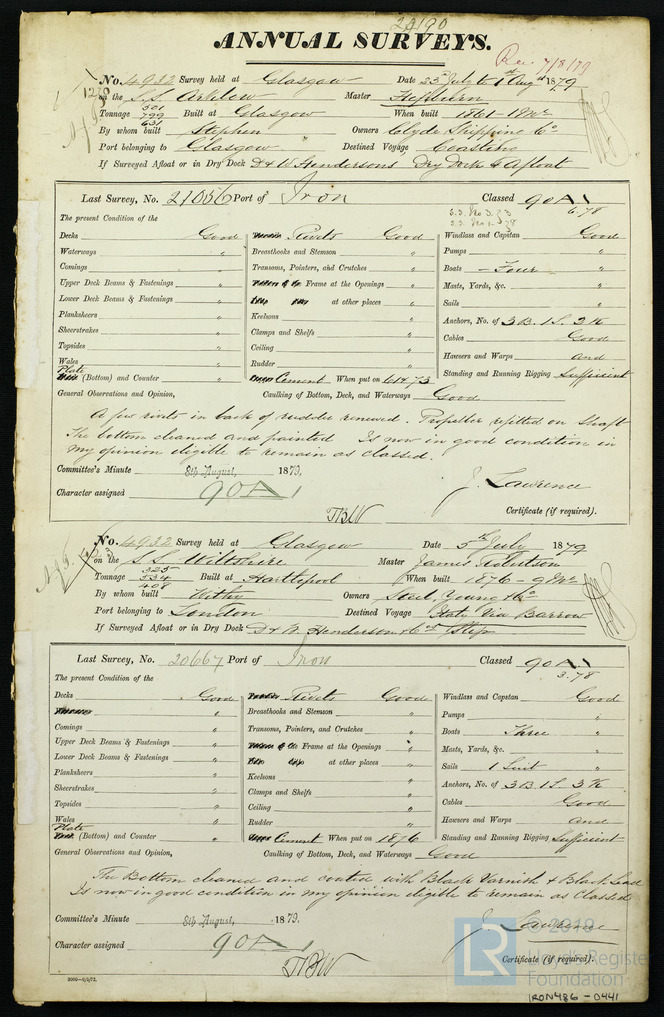 22190
ANNUAL SURVEYS.
Rec 7/8/79
No. 4932 Survey held at Glasgow Date 23rd July to 1st Augst 1879
1220
on the S.S. Arklow Master Hepburn
Tonnage 501 799 631 Built at Glasgow When built 1861-1Mo
By whom built Stephen Owners Clyde Shipping Co
Port belonging to Glasgow Destined Voyage Coasting
If Surveyed Afloat or in Dry Dock D & W Hendersons Dry Dock & Afloat
Last Survey, No. 21056 Port of Iron Classed 90 A 1
6.78
The present Condition of the S.S. No 3. S.S. No 1.
Decks Good Rivets Good Windlass and Capstan Good
Waterways " Breasthooks and Stemson " Pumps "
Comings " Transoms, Pointers, and Crutches " Boats - Four - "
Upper Deck Beams & Fastenings " Frame at the Openings " Masts, Yards, &c. "
Lower Deck Beams & Fastenings " at other places " Sails "
Planksheers " Keelsons " Anchors, No. of 3 B. 1 S. 2 K
Sheerstrakes " Clamps and Shelfs " Cables Good
Topsides " Ceiling " Hawsers and Warps and
Wales " Rudder " Standing and Running Rigging Sufficient
Plate (Bottom) and Counter " Cement When put on 6 & 4.73
General Observations and Opinion, Caulking of Bottom, Deck, and Waterways Good
A few rivets in back of rudder renewed. Propeller refitted on shaft
The bottom cleaned and painted Is now in good condition in
my opinion eligible to remain as classed.
Committee's Minute 8th August, 1879.
J. Lawrence
Character assigned 90 A 1
Certificate (if required).
No. 4932 Survey held at Glasgow Date 5th July 1879
on the S.S. Wiltshire Master James Robertson
Tonnage 525 534 408 Built at Hartlepool When built 1876-9Mo
By whom built Withy Owners Steel, Young & Co
Port belonging to London Destined Voyage Via Barrow
If Surveyed Afloat or in Dry Dock D & W. Henderson & Co Slip
Last Survey, No. 20667 Port of Iron Classed 90 A 1
3.78
The present Condition of the
Decks Good Rivets Good Windlass and Capstan Good
Breasthooks and Stemson " Pumps "
Comings " Transoms, Pointers, and Crutches " Boats Three "
Upper Deck Beams & Fastenings " Frame at the Openings " Masts, Yards, &c. "
Lower Deck Beams & Fastenings " at other places " Sails 1 Suit "
Planksheers " Keelsons " Anchors, No. of 3 B. 1 S. 2 K
Sheerstrakes " Clamps and Shelfs " Cables Good
Topsides " Ceiling " Hawsers and Warps and
Wales " Rudder " Standing and Running Rigging Sufficient
Plate (Bottom) and Counter " Cement When put on 1876
General Observations and Opinion, Caulking of Bottom, Deck, and Waterways Good
The Bottom cleaned and coated with Black Varnish & Black Lead
Is now in good condition in my opinion eligible to remain as Classed
Committee's Minute 8th August, 1879.
J. Lawrence
© 2019
Character assigned 90 A 1
LR Lloyd's Register Foundation
Certificate (if required).
IRON486-0441